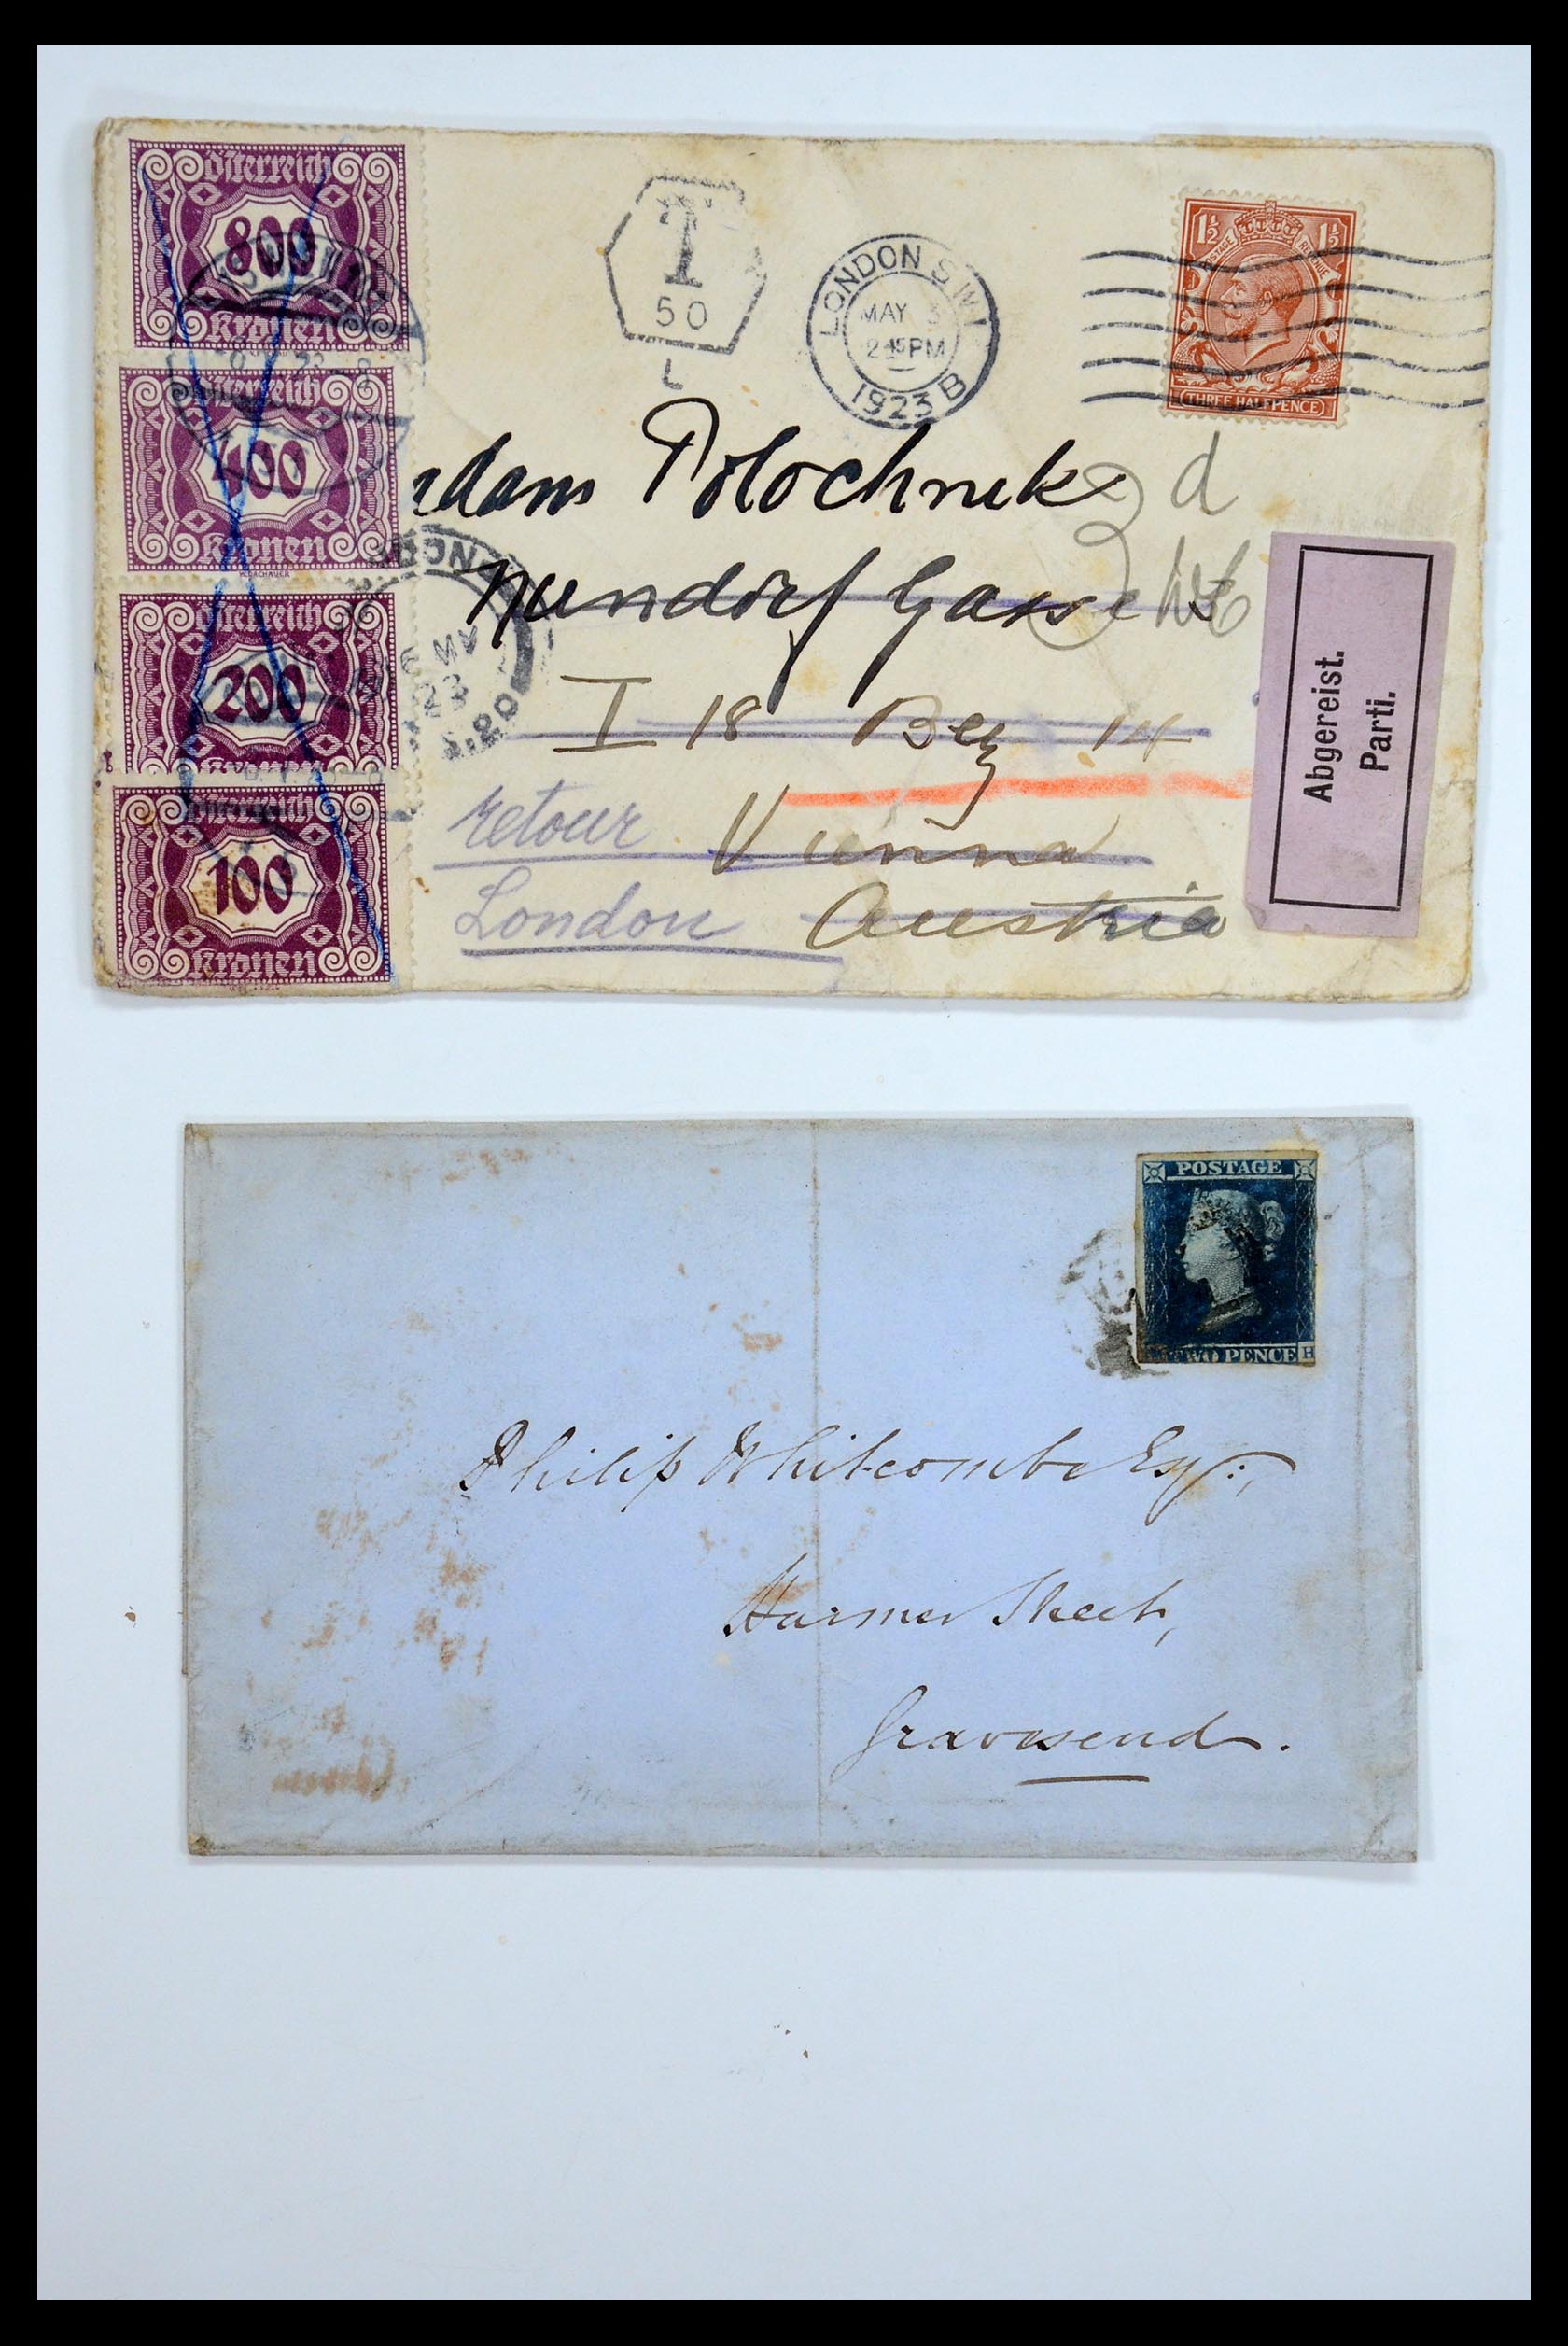 Österreich
800
Kronen
Österreich
400
Kronen
Österreich
200
Österreich
100
Kronen
T
50
L
LONDON S.W.1
MAY 3
2 15 PM
1923 B
1½ 1½
POSTAGE REVENUE
THREE HALFPENCE
dam Polochnek
Gasse
I 18 Bez 14
Vienna
Austria
retour
London
Abgereist.
Parti.
23
POSTAGE
TWO PENCE H
Philip Whitcombe Esq:,
Harmer Street,
Gravesend.